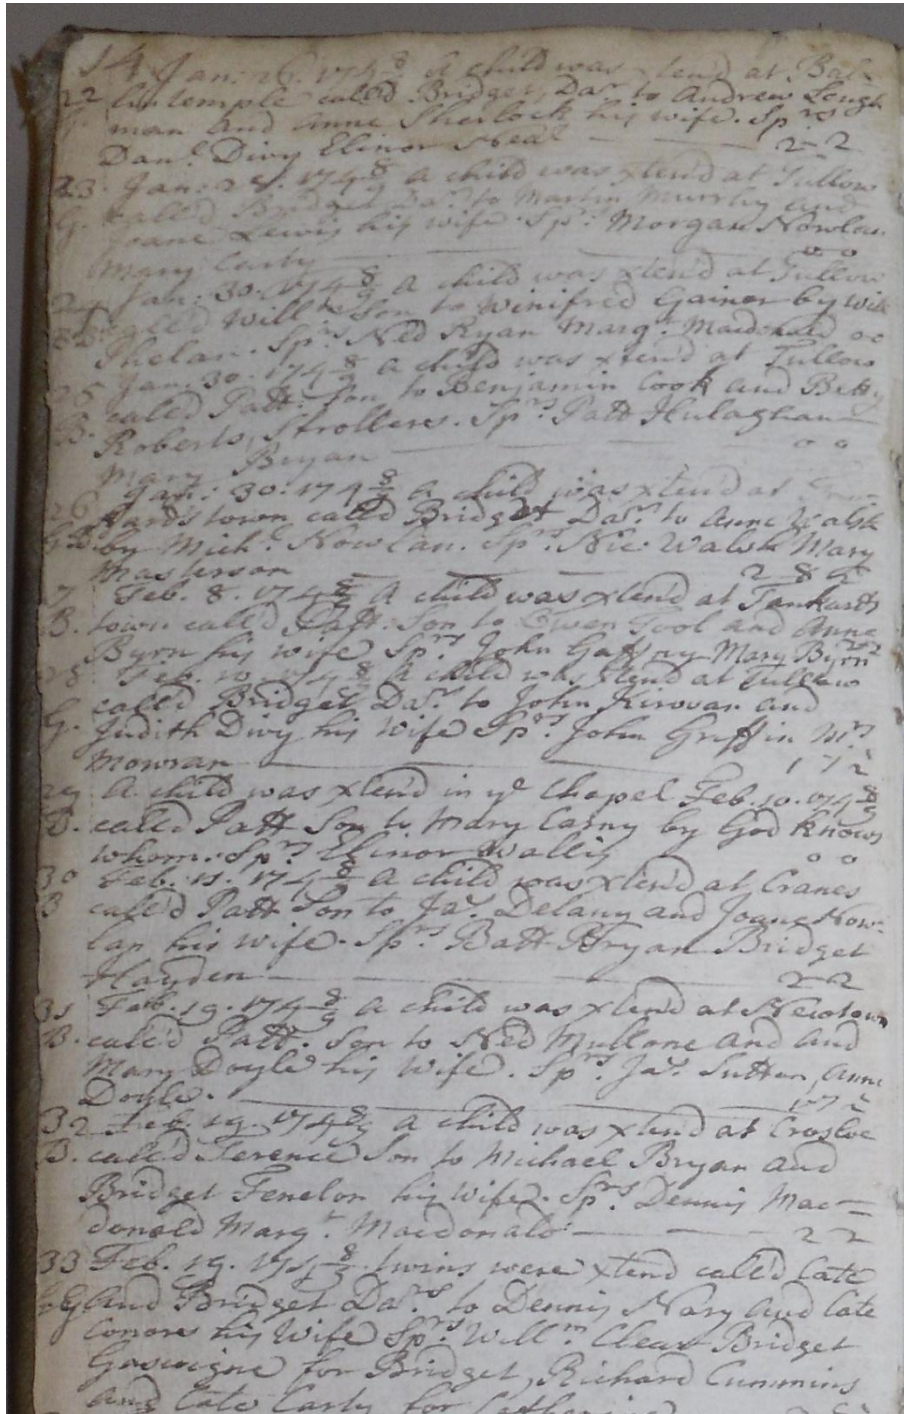 14 Jan: 26. 174 8/9 A child was xtend at Bal-
22 lintemple called Bridget, Dar. to Andrew Lough
G. man and Anne Sherlock his wife. Sprs
Danl. Divy Elinor Neal — 2-2
23. Jan: 28. 174 8/9 a child was xten'd at Tullow
G. called Bridget Dar. to Martin Murphy and
Joane Lewis his wife. Sprs: Morgan Nowlan
Mary Carty — 0 0
24 Jan: 30. 174 8/9 A child was xten'd at Tullow
called Willm Son to Winifred Gainor by Will
Phelan. Sprs Ned Ryan Margt. Macdonald 00
25 Jan: 30. 174 8/9 a child was xten'd at Tullow
B. called Patt: Son to Benjamin Cook and Betty
Roberts, Strollers. Sprs. Patt Hulaghan
Mary Bryan — 0 0
26 Jan: 30. 174 8/9 a child was xten'd at
town called Bridget Dar. to Anne Walsh
by Michl. Nowlan. Sprs. Nic: Walsh Mary
Masterson — 2 8 1/2
7 Feb. 8. 174 8/9 A child was xtend at Tankards
B. town called Patt: Son to Owen Tool and Anne
Byrn his wife Sprs. John Gafny Mary Byrn 2 2
28 Feb. 10. 174 8/9 A child was xtend at Tullow
called Bridget Dar. to John Kirovan and
G. Judith Divy his wife Sprs. John Griffin Mrs
Mowran — 1 7 1/2
29 A child was xtend in ye Chapel Feb. 10. 174 8/9
B. called Patt Son to Mary Carny by God knows
whom. Sprs Elinor Wallis 0 0
30 Feb. 11. 174 8/9 A child was xten'd at Cranes
B called Patt Son to Jas. Delany and Joane Now-
lan his wife. Sprs Batt Bryan Bridget
Hayden — 2-2
31 Feb. 19. 174 8/9 A child was xtend at Newtown
B. called Patt. Son to Ned Mullone and and
Mary Doyle his Wife. Sprs. Jas. Sutton, Anne
Doyle. — 1 7 1/2
32 Feb. 19. 174 8/9 A child was xtend at Crosloe
B. called Terence Son to Michael Bryan and
Bridget Fenelon his Wife. Sprs. Dennis Mac-
donald Margt. Macdonald — 2 2
33 Feb. 19. 174 8/9 twins were xtend called Cate
2G and Bridget Dars. to Dennis Nary and Cate
Conors his Wife Sprs. Willm. Clear Bridget
Gascoigne for Bridget, Richard Cummins
and Cate Carty for Catharine